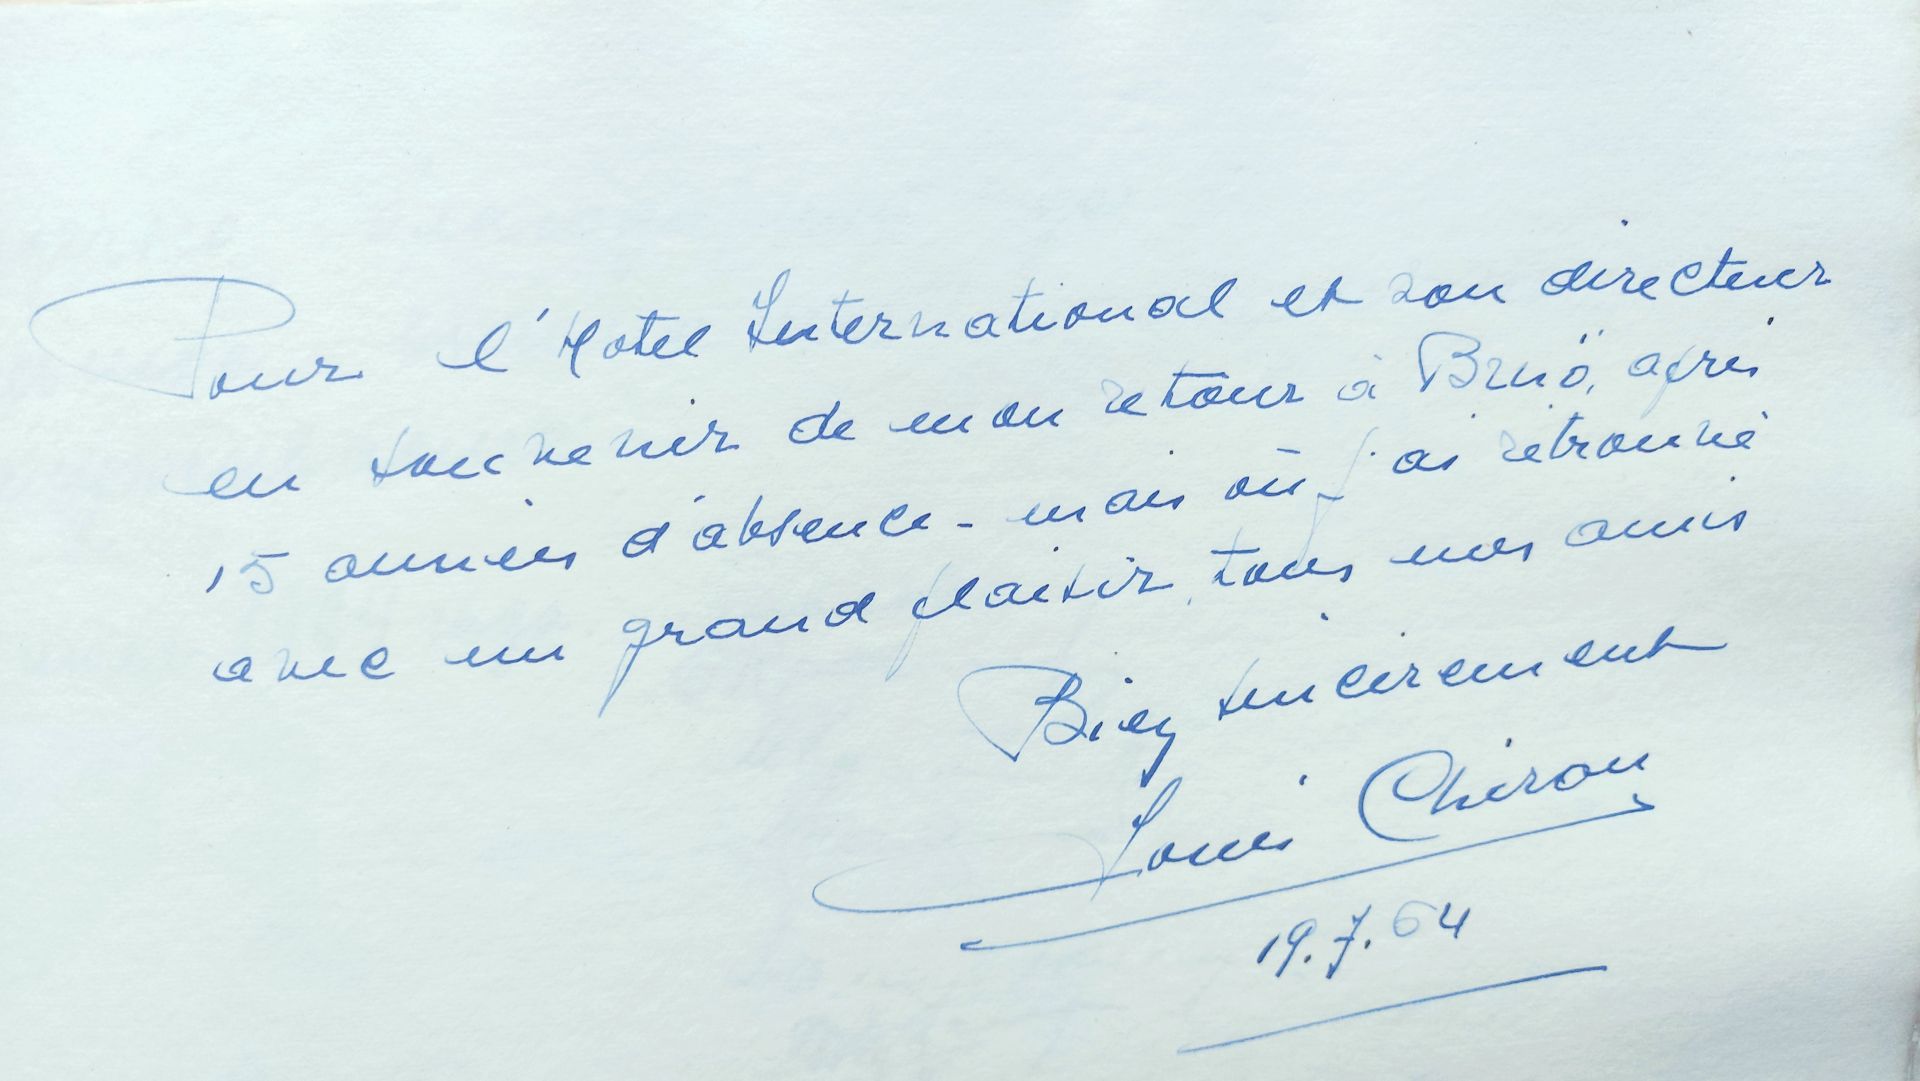 Pour l'Hotel International et son directeur
en souvenir de mon retour à Brnö, après
15 années d'absence - mais où j'ai retrouvé
avec un grand plaisir, tous mes amis
Bien sincèrement
Louis Chiron
19.7.64